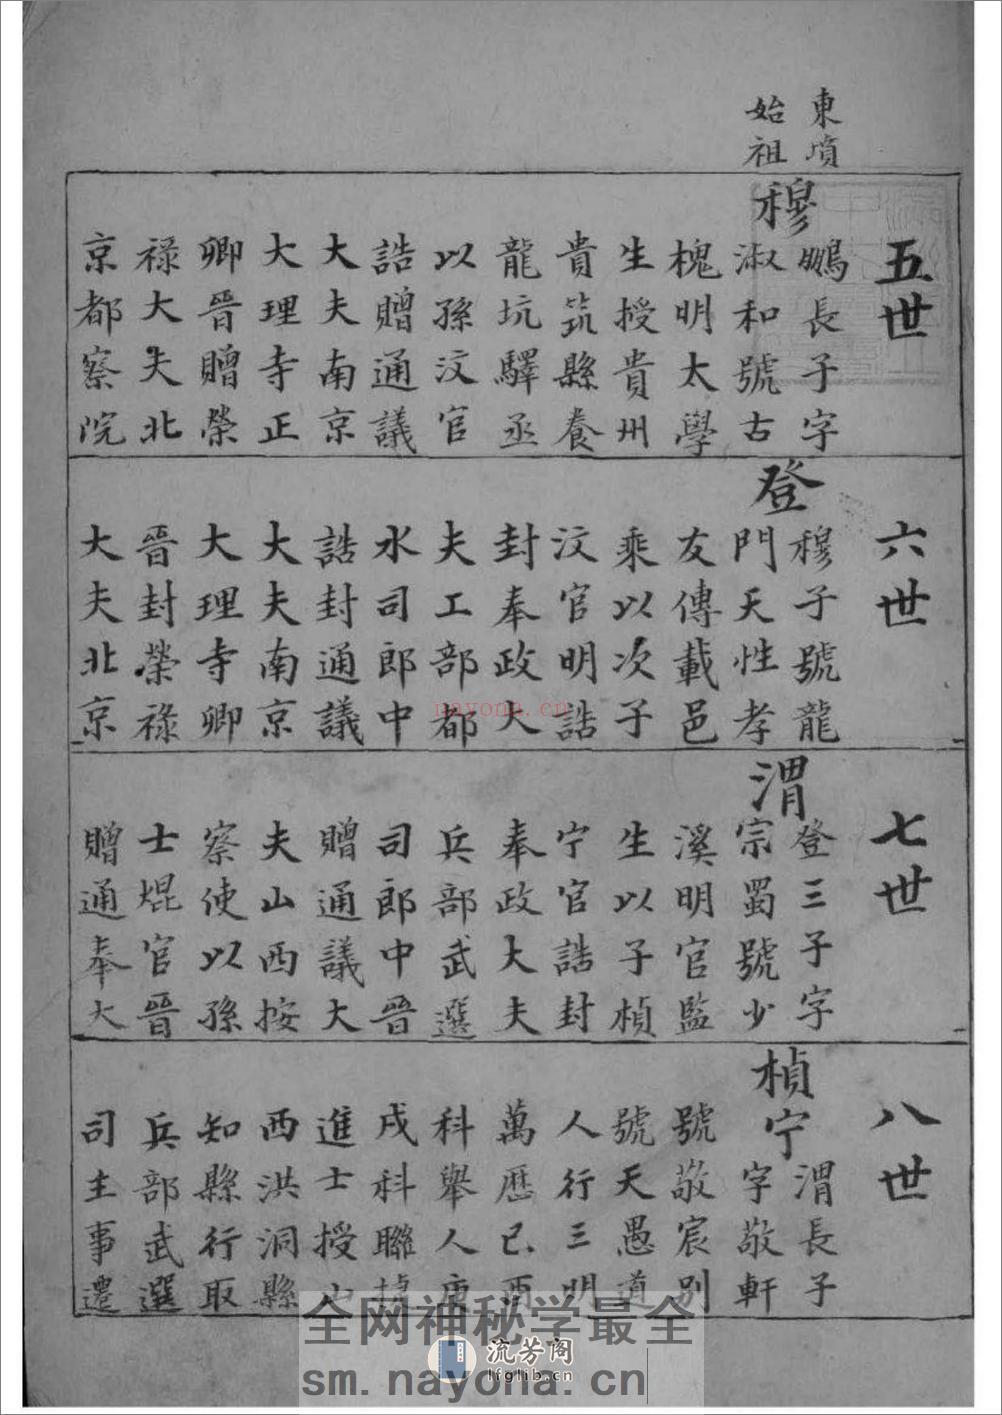 東墳
始祖
五世
穆
鵬長子字
淑和號古
槐明太學
生授貴州
貴筑縣養
龍坑驛丞
以孫汶官
誥贈通議
大夫南京
大理寺正
卿晉贈榮
祿大夫北
京都察院
六世
登
穆子號龍
門天性孝
友傳載邑
乘以次子
汶官明誥
封奉政大
夫工部都
水司郎中
誥封通議
大夫南京
大理寺卿
晉封榮祿
大夫北京
七世
渭
登三子字
宗蜀號少
溪明官監
生以子楨
宁官誥封
奉政大夫
兵部武選
司郎中晉
贈通議大
夫山西按
察使以孫
士焜官晉
贈通奉大
八世
楨宁
渭長子
字敬軒
號敬宸別
號天愚道
人行三明
萬歷己酉
科舉人庚
戌科聯捷
進士授山
西洪洞縣
知縣行取
兵部武選
司主事遷
nayona.cn
全网神秘学最全
流芳阁
lfglib.cn
sm.nayona.cn